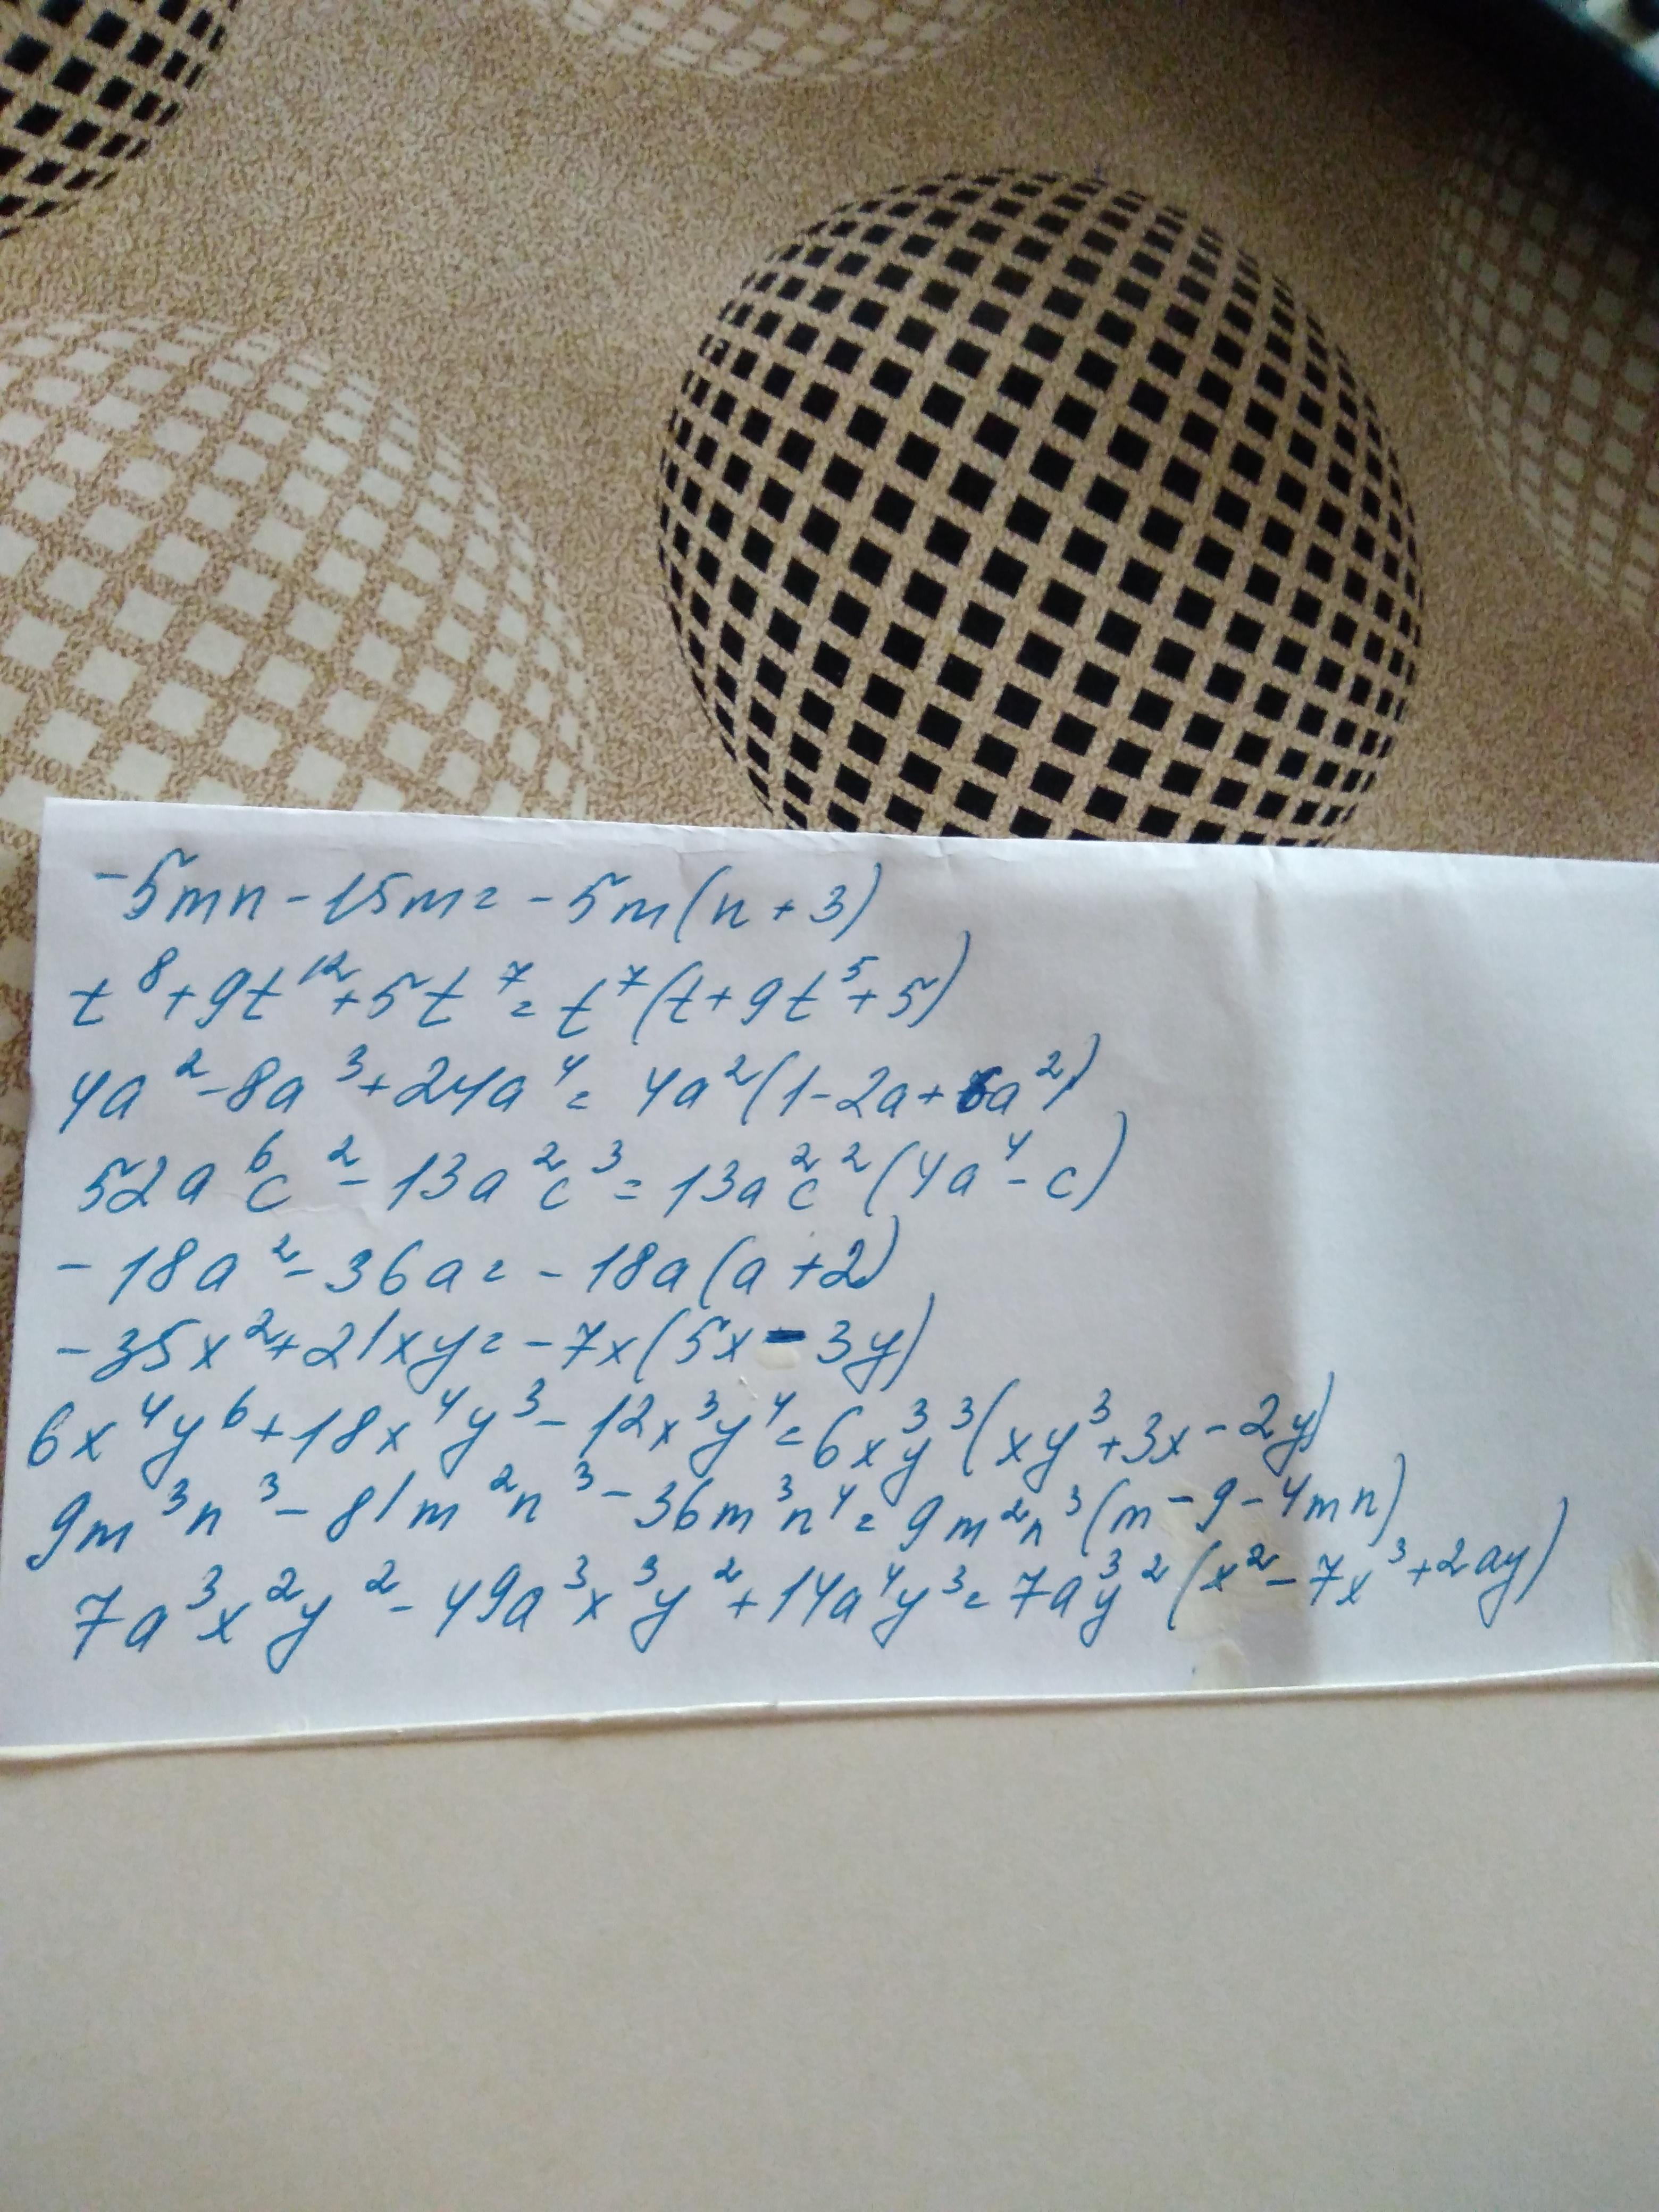 -5mn-15m=-5m(n+3)
t⁸+9t¹²+5t⁷=t⁷(t+9t⁵+5)
4a²-8a³+24a⁴=4a²(1-2a+6a²)
52a⁶c²-13a²c³=13a²c²(4a⁴-c)
-18a²-36a=-18a(a+2)
-35x²+21xy=-7x(5x-3y)
6x⁴y⁶+18x⁴y³-12x³y⁴=6x³y³(xy³+3x-2y)
9m³n³-81m²n³-36m³n⁴=9m²n³(m-9-4mn)
7a³x²y²-49a³x³y²+14a⁴y³=7a³y²(x²-7x³+2ay)